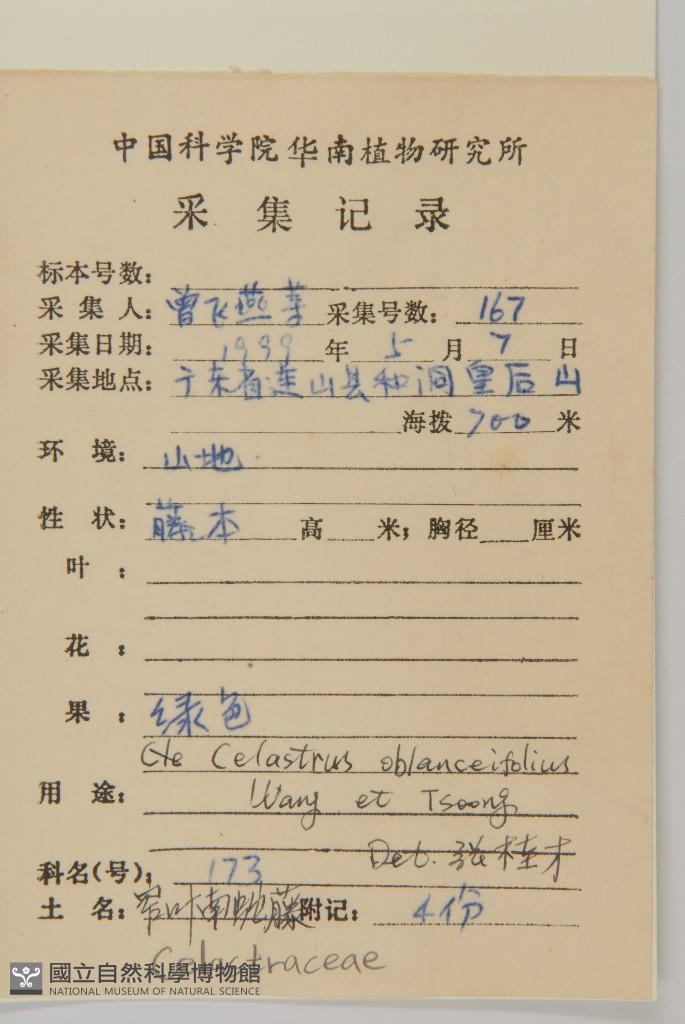 中国科学院华南植物研究所
采集记录
标本号数:
采集人: 曾飞燕等 采集号数: 167
采集日期: 1999 年 5 月 7 日
采集地点: 广东省连山县和洞皇后山
海拨 700 米
环境: 山地
性状: 藤本 高 米; 胸径 厘米
叶:
花:
果: 绿色
Celastrus oblanceifolius
用途: Wang et Tsoong
Det. 张桂才
科名(号): 173
土名: 窄叶南蛇藤 附记: 4份
Celastraceae
國立自然科學博物館
NATIONAL MUSEUM OF NATURAL SCIENCE